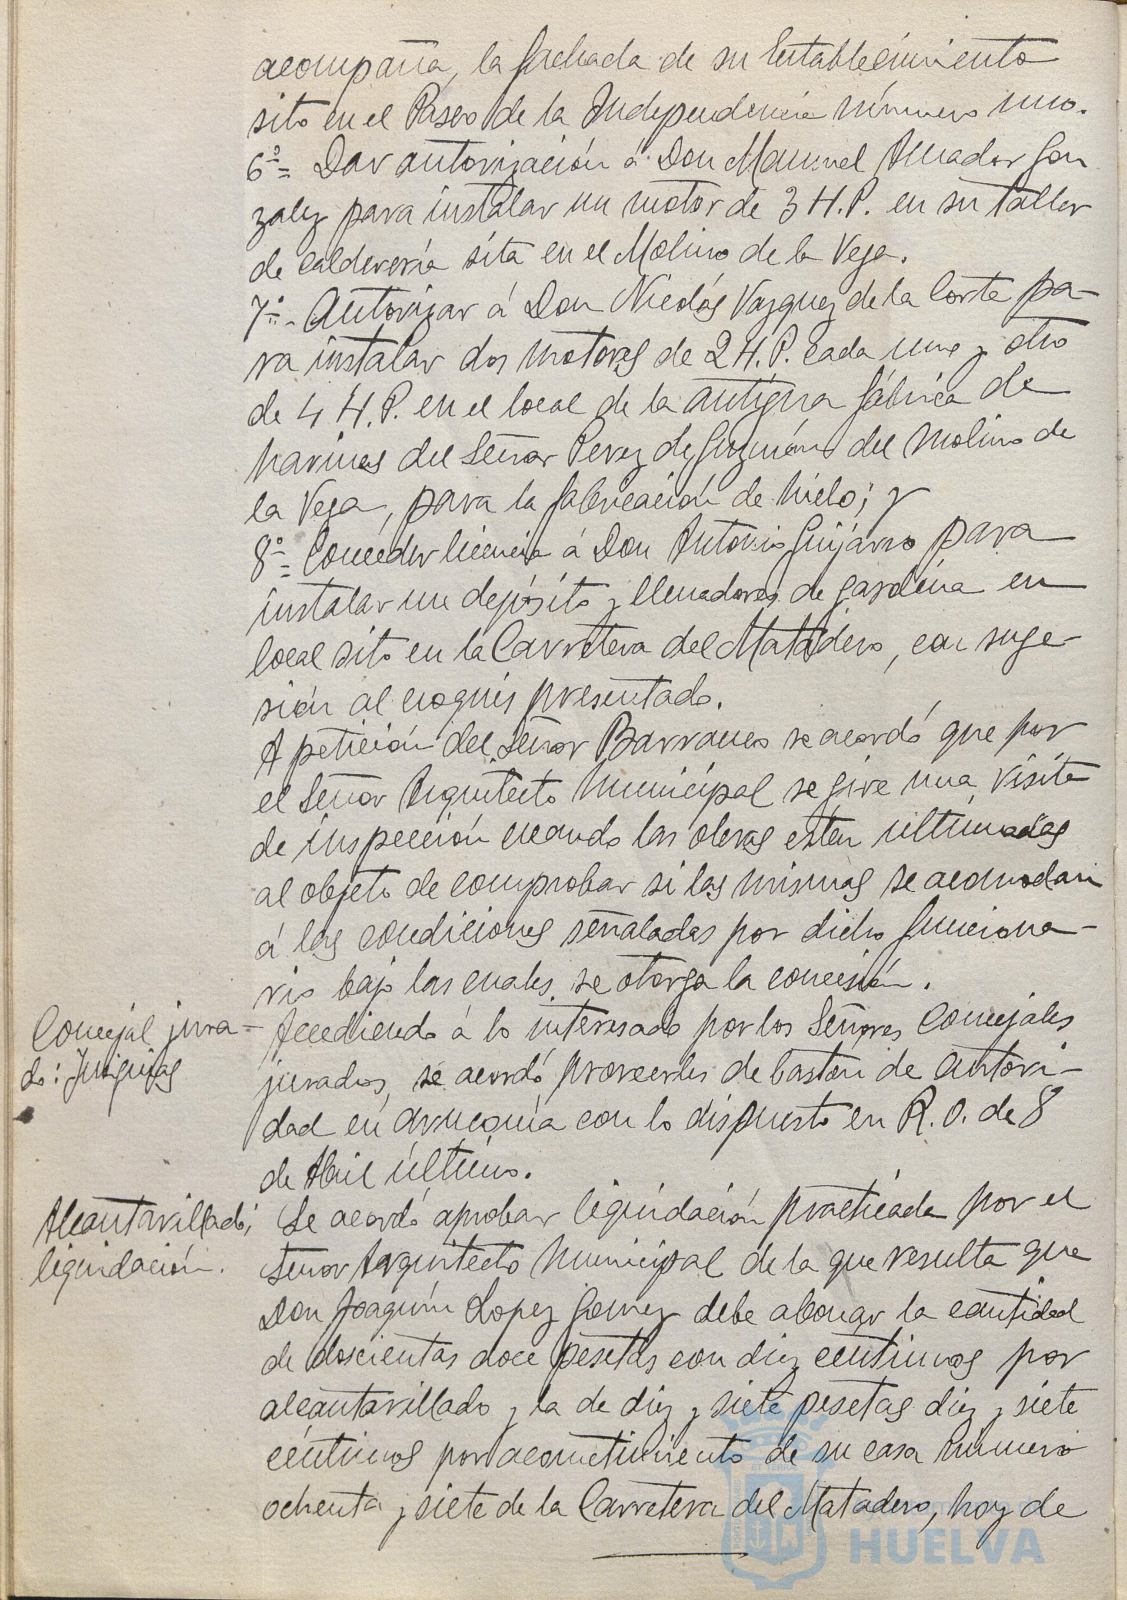 acompaña, la fachada de su Establecimiento
sito en el Paseo de la Independencia número uno.
6º= Dar autorización á Don Manuel Amador Gon
zalez para instalar un motor de 3 H.P. en su taller
de calderería sita en el Molino de la Vega.
7º- Autorizar á Don Nicolás Vazquez de la Corte pa-
ra instalar dos motores de 2 H.P. cada uno y otro
de 4 H.P. en el local de la antigua fábrica de
harinas del Señor Perez de Guzmán del Molino de
la Vega, para la fabricación de hielo; y
8º= Conceder licencia á Don Antonio Guijarro para
instalar un depósito y llenadores de gasolina en
local sito en la Carretera del Matadero, con suge-
sión al croquis presentado.
A petición del Señor Barranco se acordó que por
el Señor Arquitecto Municipal se gire una visita
de inspección cuando las obras estén ultimadas
al objeto de comprobar si las mismas se acomodan
á las condiciones señaladas por dicho funciona-
rio bajo las cuales se otorga la concesión.
Concejal jura-
do: Insignias
Accediendo á lo interesado por los Señores Concejales
jurados, se acordó proveerles de bastón de autori-
dad en armonía con lo dispuesto en R.O. de 8
de Abril último.
Alcantarillado;
liquidación.
Se acordó aprobar liquidación practicada por el
Señor Arquitecto Municipal de la que resulta que
Don Joaquín Lopez Gomez debe abonar la cantidad
de doscientas doce pesetas con diez centimos por
alcantarillado y la de diez y siete pesetas diez y siete
céntimos por acometimiento de su casa número
ochenta y siete de la Carretera del Matadero, hoy de
HUELVA